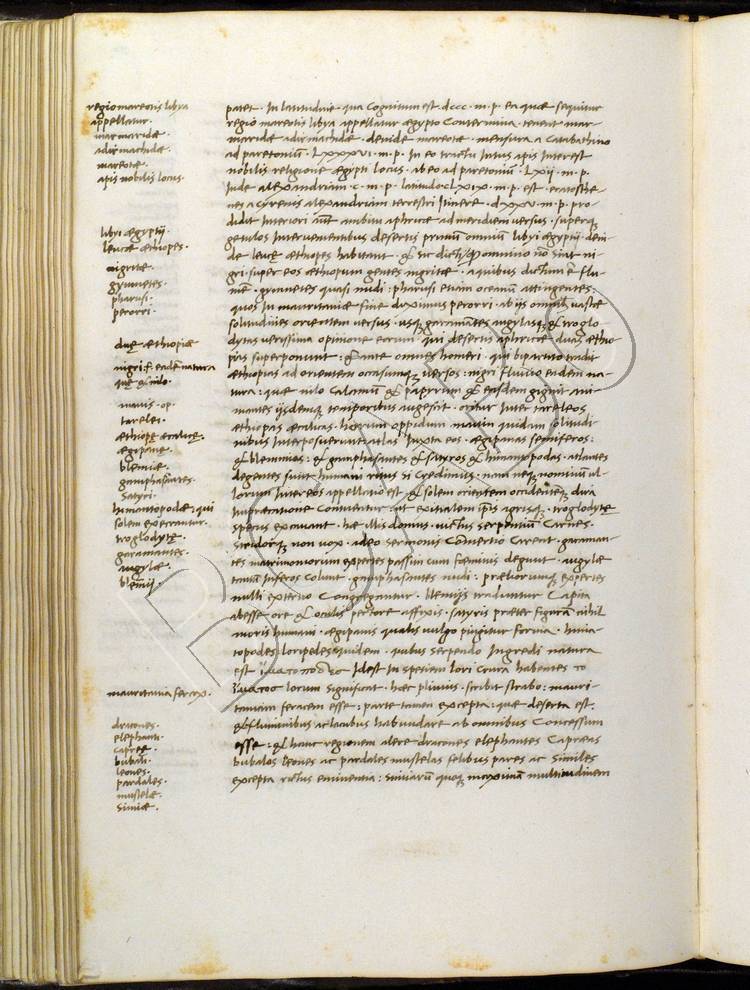 regio mareotis libya
appellatur.
marmaridæ.
adirmachidæ.
mareotæ.
apis nobilis locus.
libyi ægyptij.
leucæ æthiopes.
nigritæ.
gymnetes.
pharusi.
perorri.
duę æthiopiæ
nigri.f. eadem natura
quę & nilo.
mavis. op.
tarelei.
æthiopę æcalicę.
ægipanę.
blemiæ.
gamphasātes.
Satyri.
himantopodæ: qui
solem execrantur.
troglodytę.
garamantes.
augylæ.
blēmij.
mauritania ferax.
dracones.
elephanti.
capreę.
bubali.
leones.
pardales.
mustelæ.
Simiæ.
patet. In latitudine. qua Cognitum est. dccc. m. p. ea quæ sequitur
regio mareotis libya appellatur ægypto Contermina. tenent mar-
maridæ adirmachidæ. deinde mareotæ. mensura a Catabathmo
ad paretoniū. LXXXVI. m. p. In eo tractu Intus apis Interest
nobilis religione ægypti locus. ab eo ad paretoniū. LXII. m. p.
Inde alexandriam. c. m. p. latitudo CLXIX. m. p. est. eratosthe-
nes a cyrenis alexandriam terrestri Itinere. dXXV. m. p. pro
didit Interiori aūt ambitu aphricæ ad meridiem versus. superq̨
getulos Intervenientibus desertis primū omniū libyi ægyptij. dein-
de leucę æthiopes habitant. & sic dicti q̨ omnino nō sint ni-
gri. super eos æthiopum gentes nigritæ. a quibus dictum ē flu-
mē. gymnetes quasi nudi: pharusi etiam oceanū attingentes:
quos In mauritaniæ fine diximus perorri. ab ijs omnib; vastæ
solitudines orientem versus. usq; garamātes augylasq; & troglo
dytas verissima opinione eorum. qui desertis aphricæ duas æthio
pias superponunt. & ante omnes homeri. qui bipartito tradit
æthiopas ad orientem occasumq; versos: nigri fluuio eadem na-
tura: quæ nilo Calamū & papyrum & easdem gignit ani-
mantes ijsdemq; temporibus augescit. oritur Inter tareleos
æthiopas æcalicas. horum oppidum mavin quidam solitudi-
nibus Interposuerunt. atlas Iuxta eos. ægipanas semiferos:
& blemmias: & gamphasantes & satyros & himantopodas. atlantes
degentes sunt humani ritus si Credimus. nam neq; nominū ul-
lorum Inter eos appellatio est & solem orientem occidentēq; dira
Imprecatione Contuentur. ut exitialem ipsis agrisq;. troglodytę
specus excauant. hæ illis domus. victus serpentiū Carnes.
Stridorq; non vox. adeo sermonis Cōmertio Carent. garaman-
tes matrimoniorum expertes passim cum fæminis degunt. augylæ
tantū Inferos Colunt. gamphasantes nudi. præliorumq; expertes
nulli externo Conggregantur. blemijs traduntur Capita
abesse ore & oculis pectore affixis. satyris præter figuram nihil
moris humani. ægipanis qualis vulgo pingitur forma. himā-
topodes loripedes quidem. quibus serpendo Ingredi natura
est Idest In spetiem lori Crura habentes
lorum significat. hæc plinius. scribit strabo: mauri-
taniam feracem esse: parte tamen excepta: quæ deserta est.
& fluminibus ac lacubus habundare ab omnibus Concessum
esse: & hanc regionem alere dracones elephantes Capræas
bubalos leones ac pardales mustelas felibus pares ac similes
excepta rictus eminentia: simiarū quoq; maximā multitudinem